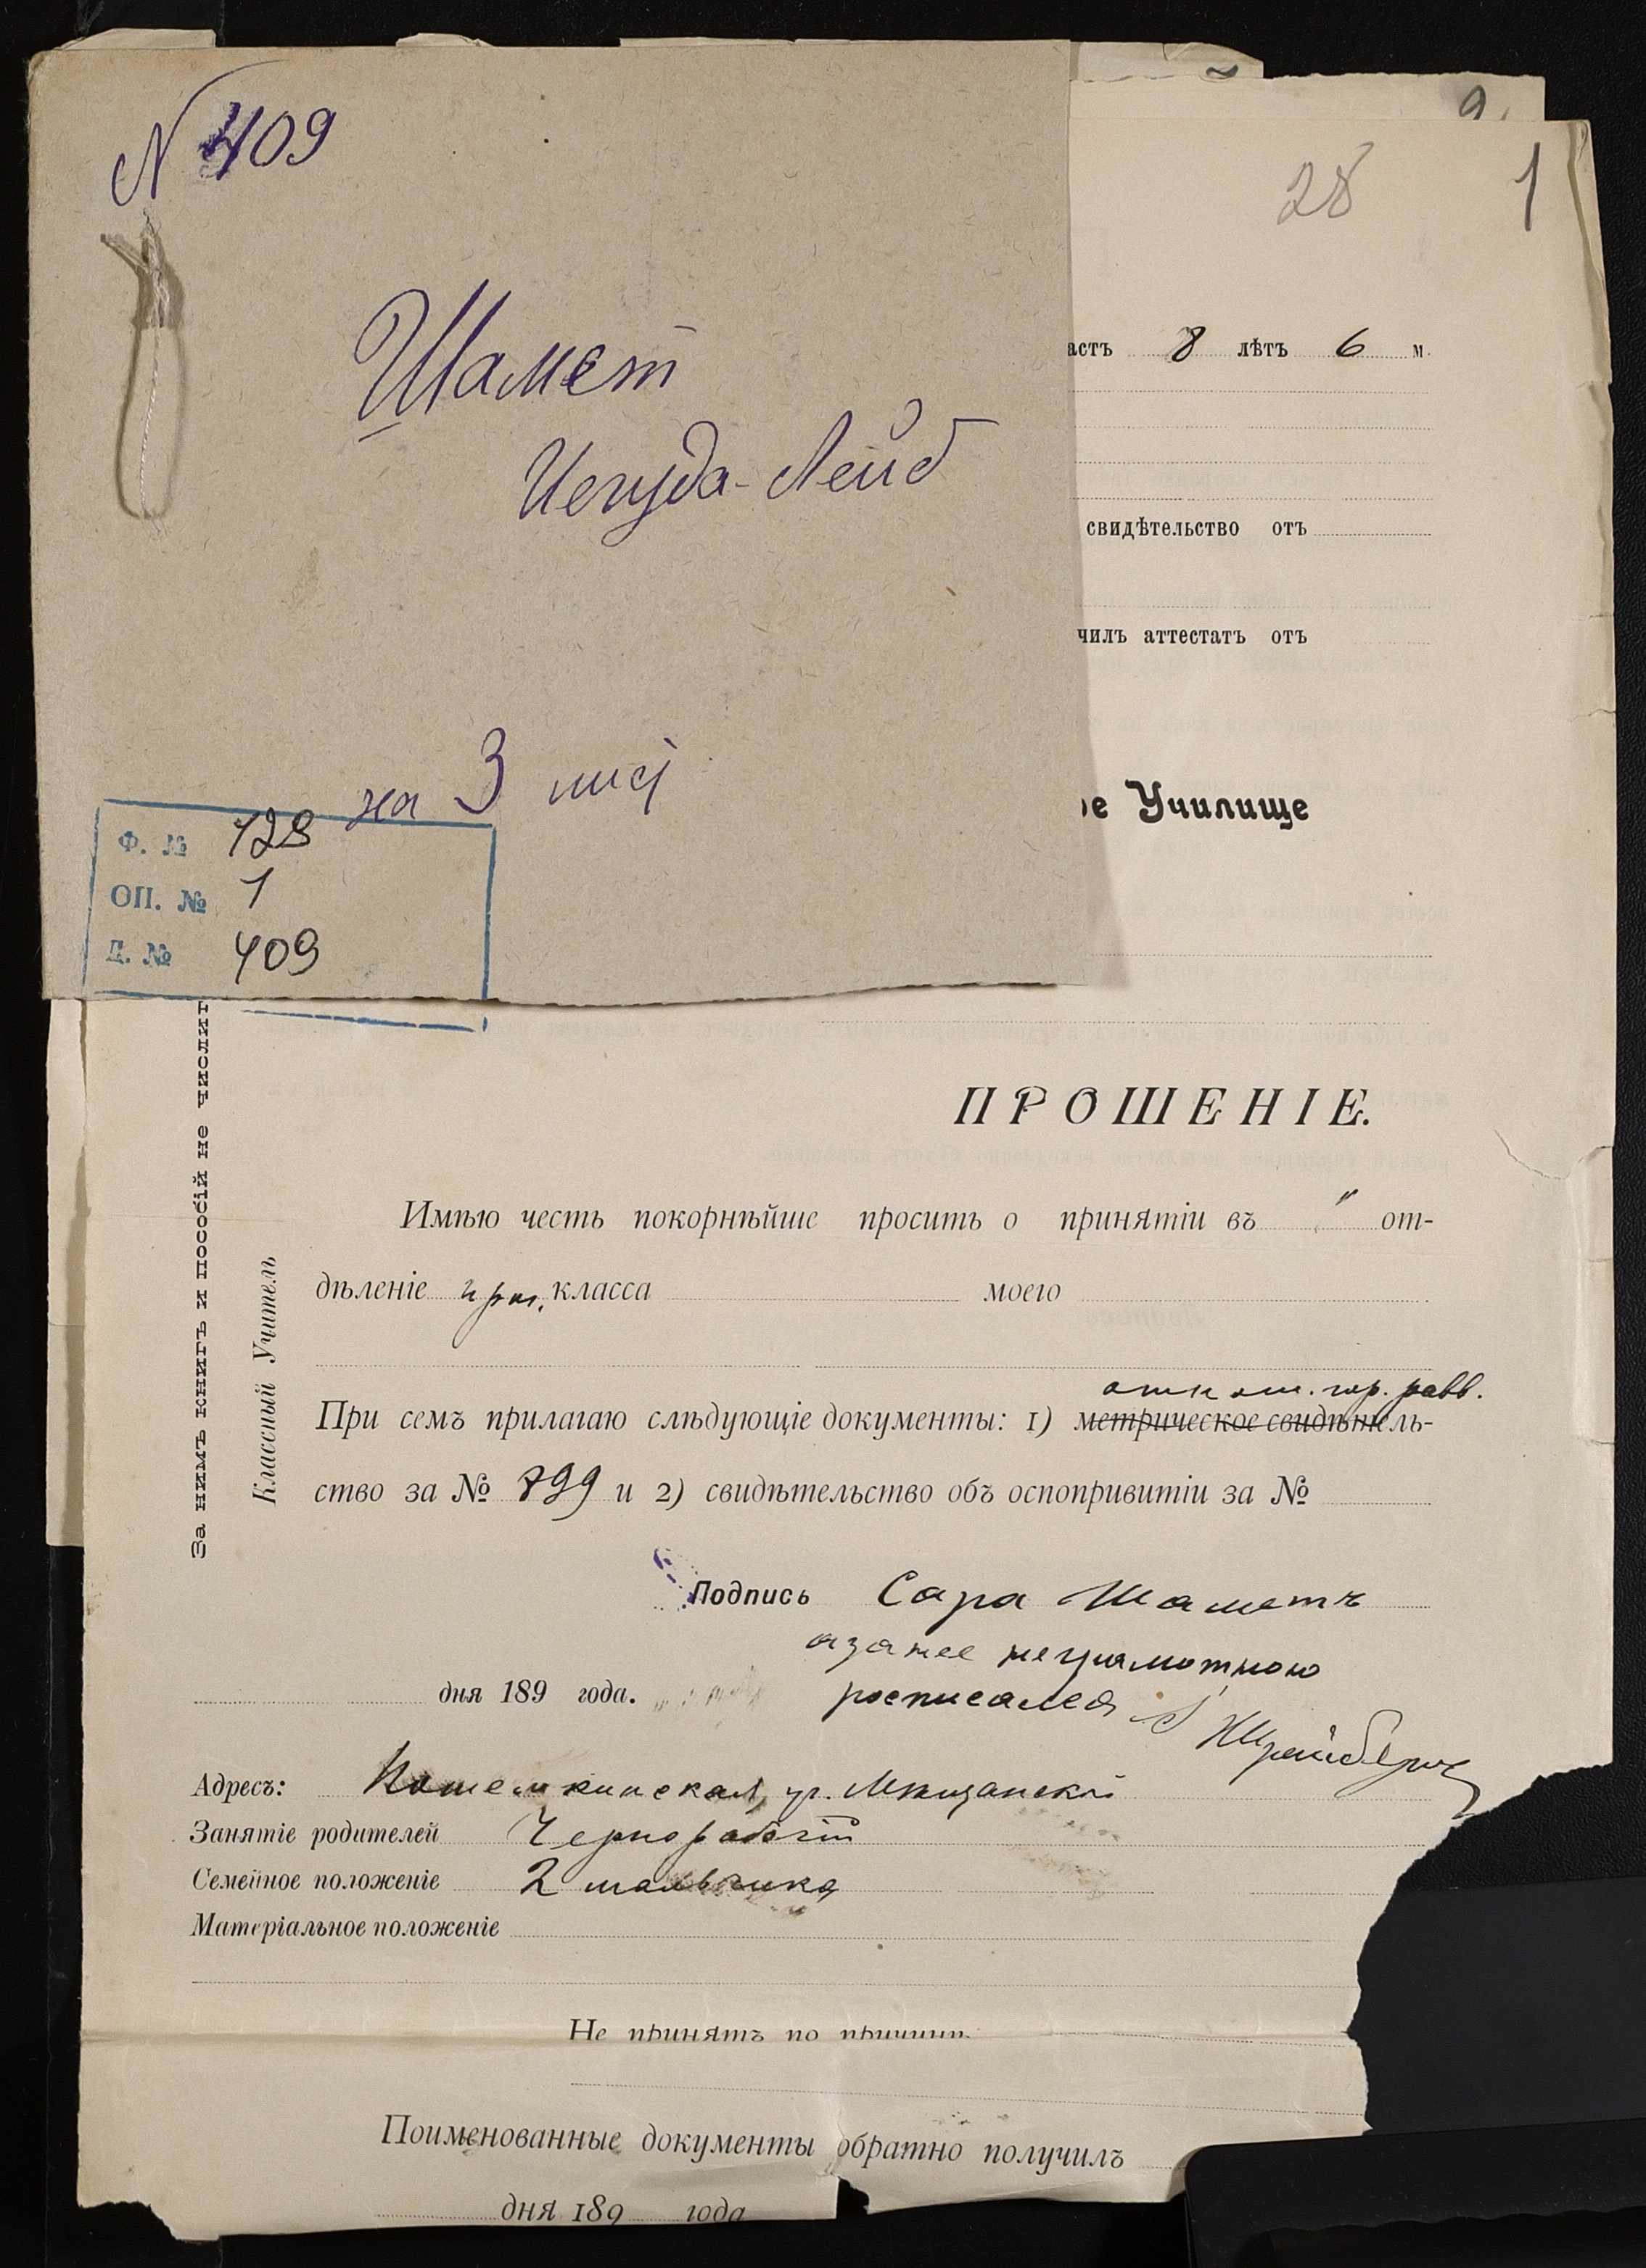 N 409
Шамет
Иегуда-Лейб
на 3 лис
Ф. № 128
ОП. № 1
Д. № 409
9
28
1
астъ 8 лѣтъ 6 м.
свидѣтельство отъ
чилъ аттестатъ отъ
ое Училище
ПРОШЕНІЕ.
Имѣю честь покорнѣйше просить о принятіи въ " от-
дѣленіе приг. класса моего
отн. гор. равв.
При семъ прилагаю слѣдующіе документы: 1) метрическое свидѣтель-
ство за № 799 и 2) свидѣтельство объ оспопривитіи за №
Подпись Сара Шаметъ
а за нее неграмотною
дня 189 года. росписался
Адресъ: Потемкинская, уг.
Занятіе родителей Чернорабочій
Семейное положеніе 2 мальчика
Матеріальное положеніе
Не принятъ по причинѣ
Поименованные документы обратно получилъ
дня 189 года
За нимъ книгъ и пособій не числит
Классный Учитель